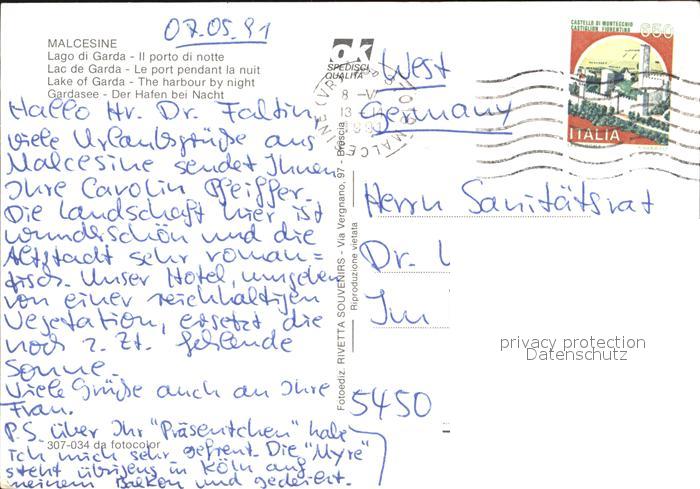 07.05.91
MALCESINE
Lago di Garda - Il porto di notte
Lac de Garda - Le port pendant la nuit
Lake of Garda - The harbour by night
Gardasee - Der Hafen bei Nacht
ok
SPEDISCI
QUALITÀ
CASTELLO DI MONTECCHIO
CASTIGLION FIORENTINO
650
ITALIA
MALCESINE (VR)
Hallo Hr. Dr. Faltin,
viele Urlaubsgrüße aus
Malcesine sendet Ihnen
Ihre Carolin Pfeiffer.
Die Landschaft hier ist
wunderschön und die
Altstadt sehr roman=
tisch. Unser Hotel, umgeben
von einer reichhaltigen
Vegetation, ersetzt die
noch z. Zt. fehlende
Sonne.
Viele Grüße auch an Ihre
Frau.
P.S. über Ihr "Präsentchen" habe
ich mich sehr gefreut. Die "Myre"
steht übrigens in Köln auf
meinem Balkon und gedeiht.
307-034 da fotocolor
Fotoediz. RIVETTA SOUVENIRS - Via Vergnano, 97 - Brescia
Riproduzione vietata
West
Germany
Herrn Sanitätsrat
Dr.
Im
5450
privacy protection
Datenschutz